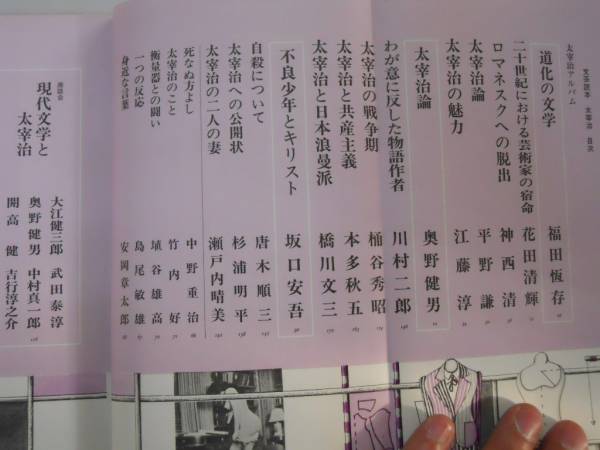 文芸読本 太宰治 目次
太宰治アルバム
道化の文学 福田恆存
二十世紀における芸術家の宿命 花田清輝
ロマネスクへの脱出 神西清
太宰治論 平野謙
太宰治の魅力 江藤淳
太宰治論 奥野健男
わが意に反した物語作者 川村二郎
太宰治の戦争期 桶谷秀昭
太宰治と共産主義 本多秋五
太宰治と日本浪曼派 橋川文三
不良少年とキリスト 坂口安吾
自殺について 唐木順三
太宰治への公開状 杉浦明平
太宰治の二人の妻 瀬戸内晴美
死なぬ方よし 中野重治
太宰治のこと 竹内好
衡量器との闘い 埴谷雄高
一つの反応 島尾敏雄
身近な言葉 安岡章太郎
座談会
現代文学と太宰治
大江健三郎 武田泰淳
奥野健男 中村真一郎
開高健 吉行淳之介